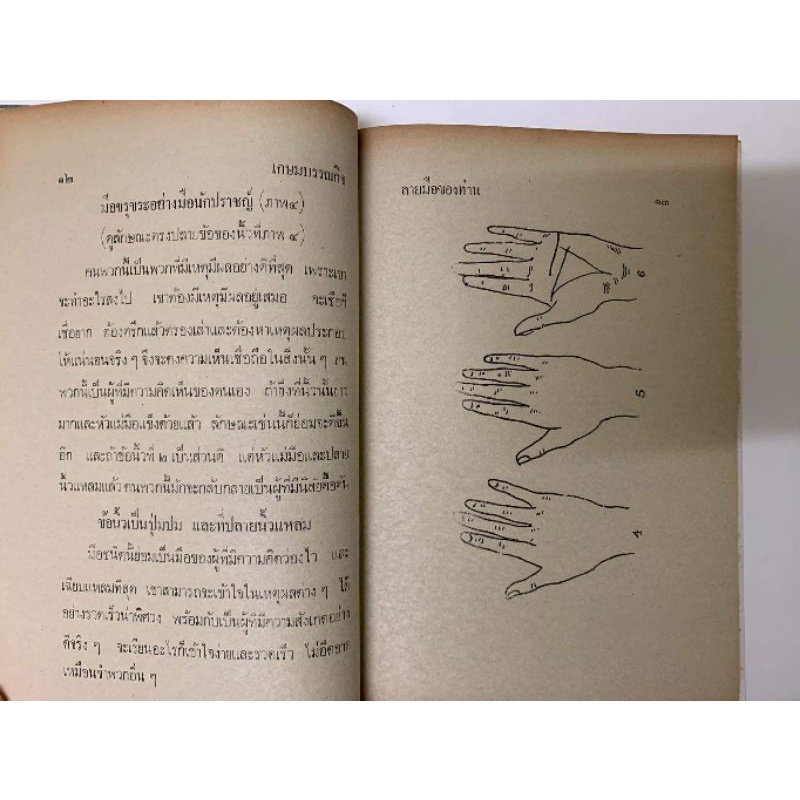 ๑๒
เกษมบรรณกิจ
มือขรุขระอย่างมือนักปราชญ์ (ภาพ ๔)
(ดูลักษณะตรงปลายข้อของนิ้วที่ภาพ ๔)
คนพวกนี้เป็นพวกที่มีเหตุมีผลอย่างดีที่สุด เพราะเขา
จะทำอะไรลงไป เขาต้องมีเหตุมีผลอยู่เสมอ จะเชื่อก็
เชื่อยาก ต้องตรึกแล้วตรองเล่าและต้องหาเหตุผลประกอบ
ให้แน่นอนจริง ๆ จึงจะคงความเห็นเชื่อถือในสิ่งนั้น ๆ
พวกนี้เป็นผู้ที่มีความคิดเห็นของตนเอง ถ้ายิ่งที่นิ้วนั้น
มากและหัวแม่มือแข็งด้วยแล้ว ลักษณะเช่นนี้ก็ย่อมจะดีขึ้น
อีก และถ้าข้อนิ้วที่ ๒ เป็นส่วนดี แต่หัวแม่มือและปลาย
นิ้วแหลมแล้ว คนพวกนี้มักจะกลับกลายเป็นผู้ที่มีนิสัย
ข้อนิ้วเป็นปุ่มปม และที่ปลายนิ้วแหลม
มือชนิดนี้ย่อมเป็นมือของผู้ที่มีความคิดว่องไว และ
เฉียบแหลมที่สุด เขาสามารถจะเข้าใจในเหตุผลต่าง ๆ ได้
อย่างรวดเร็วน่าพิศวง พร้อมกับเป็นผู้ที่มีความสังเกตอย่าง
ดีจริง ๆ จะเรียนอะไรก็เข้าใจง่ายและรวดเร็ว ไม่อืดอาด
เหมือนจำพวกอื่น ๆ
ลายมือของท่าน
๑๓
6
5
4